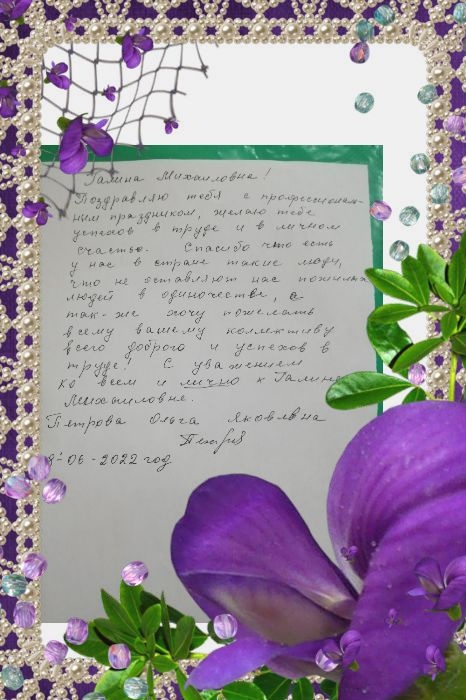 Галина Михаиловна!
Поздравляю тебя с профессионал-
ним праздником, желаю тебе
успехов в труде и в личном
счастье. Спасибо что есть
у нас в стране такие люди,
что не оставляют нас пожилых
людей в одиночестве, а
так-же хочу пожелать
всему вашему коллективу
всего доброго и успехов в
труде! С уважением
ко всем и лично к Галине
Михаиловне.
Петрова Ольга Яковлевна
8-06-2022 год